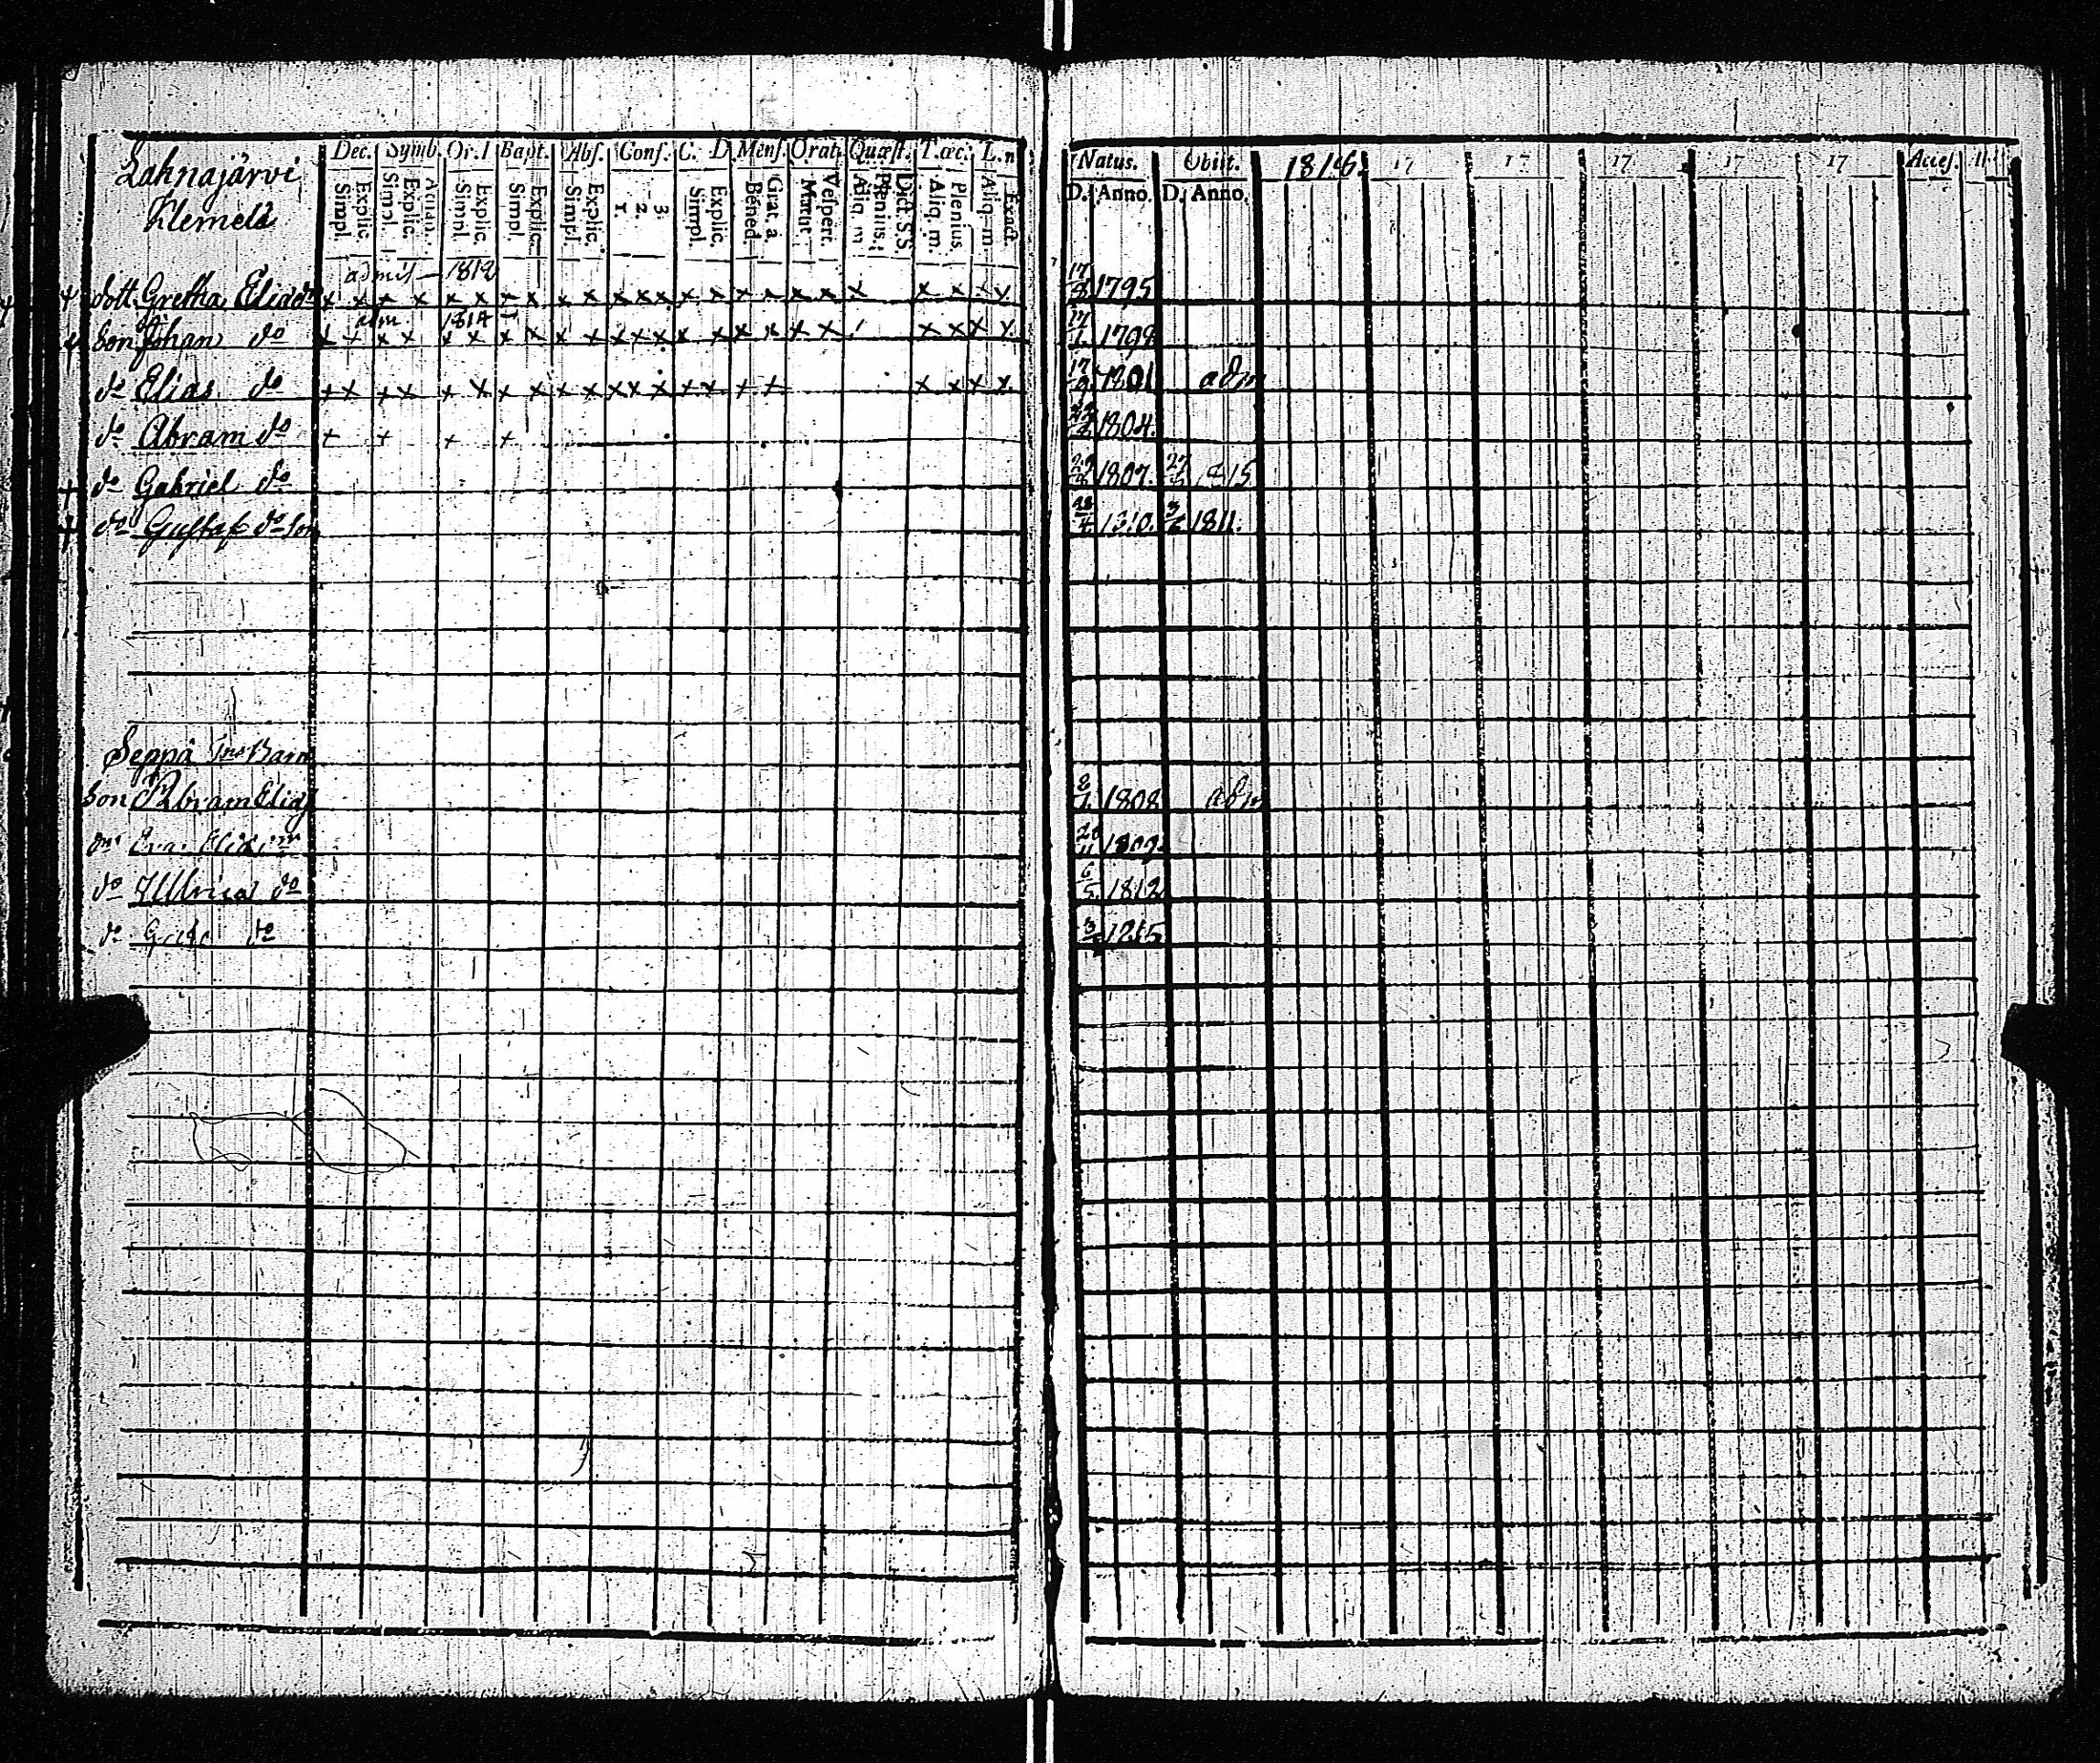 Lahnajärvi
Klemelä
Dec. Symb. Or. Bapt. Abs. Conf. C. D. Mens. Orat. Quæst. T. œc. L.
Simpl. Explic. Simpl. Explic. Simpl. Explic. Simpl. Explic. Simpl. Explic. 1. 2. 3. Simpl. Explic. Bened. Grat. a. Matut. Vespert. Aliq. m. Plenius. Dict. S.S. Aliq. m. Plenius. Aliq. m. Exact.
Natus. Obiit. 1816. 17 17 17 17 17 Acces.
D. Anno. D. Anno.
admis 1812
dott. Gretha Eliædr x x x x x x x x x x x x x x x x x x x x x x x x 17 1795
adm 1814
Son Johan do x x x x x x x x x x x x x x x x x x x x x x 1799
do Elias do x x x x x x x x x x x x x x x x x x x x x 17/9 1801 adm
do Abram do + + + + 1804.
+ do Gabriel do 1807. 27 815
+ do Gustaf do son 4 1810. 3/6 1811.
Seppä Barn
Son Abram Elias 8/1 1808 adm
Eva 1809
do Ullrica do 6/5 1812
do do 1815